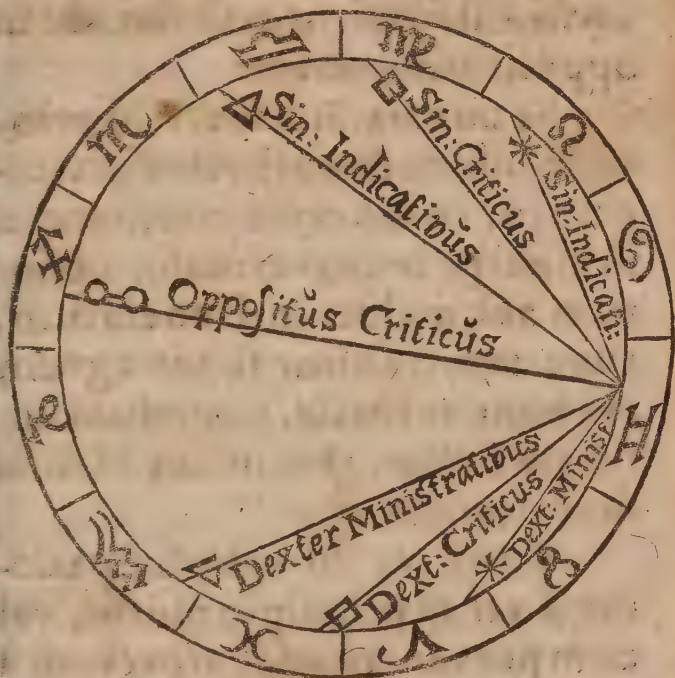 Sin: Indicativŭs
Sin: Criticus
Sin: Indicati:
Oppoſitŭs Criticŭs
Dexter Ministrativus
Dext: Criticus
Dext: Minist